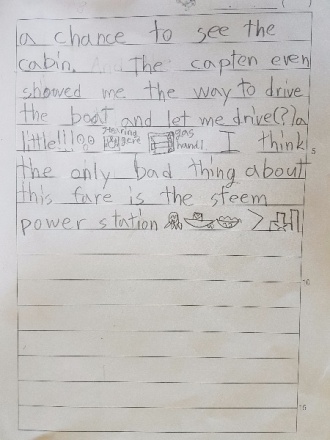 a chance to see the
cabin. The capten even
showed me the way to drive
the boat and let me drive(?)a
little!!! stearing gas
handl I think
the only bad thing about
this fare is the steem
power station >
5
10
15